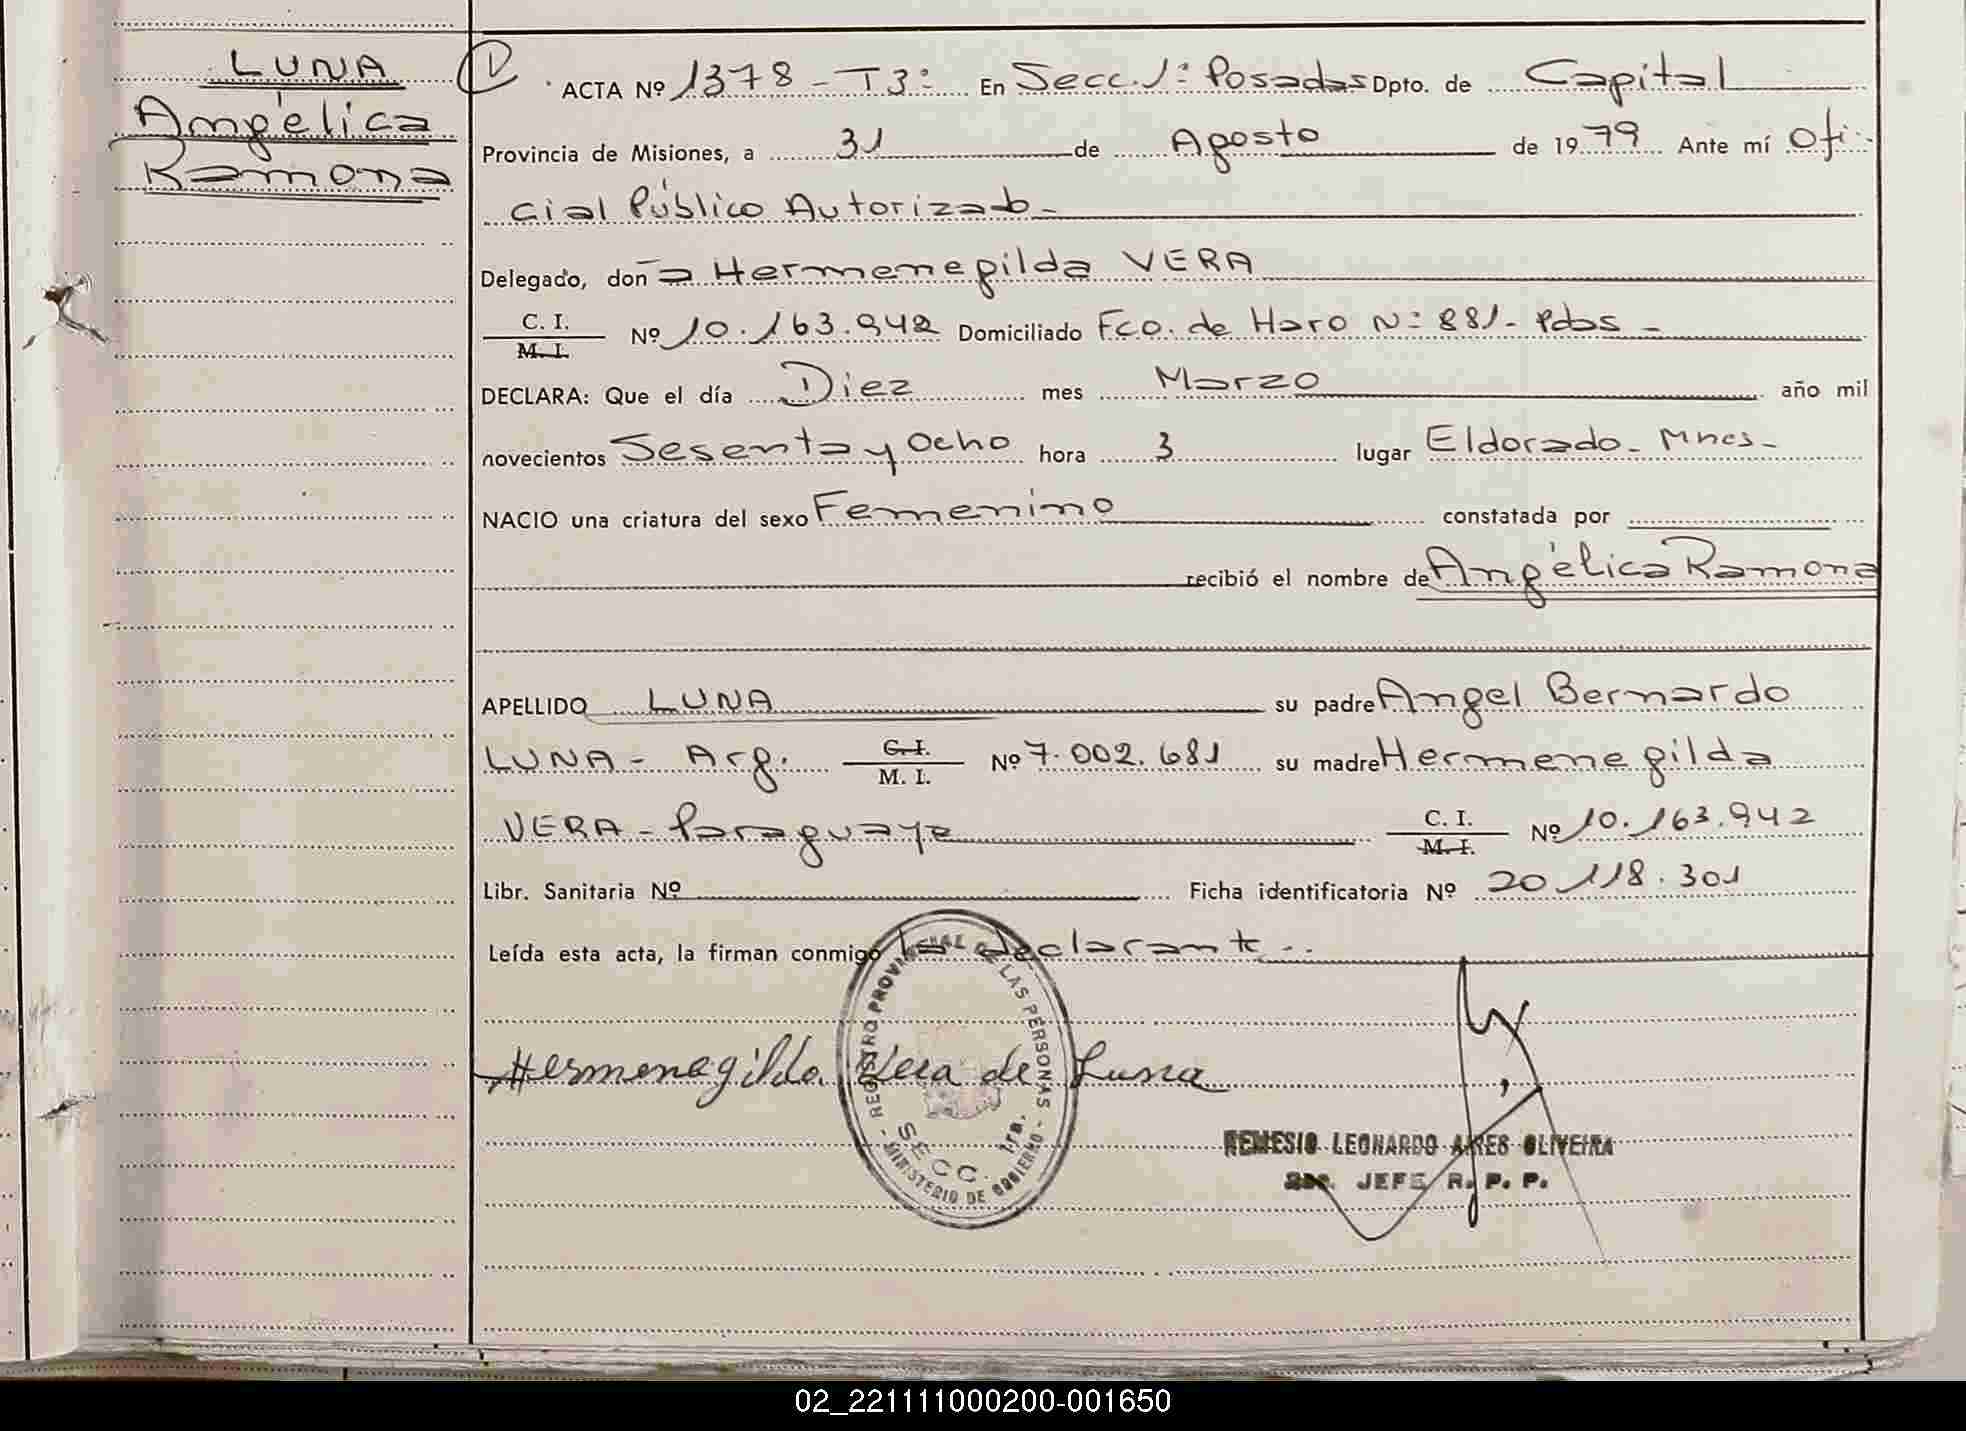 LUNA
Angélica
Ramona
ACTA Nº 1378 - T3: En Secc. 1ª Posadas Dpto. de Capital
Provincia de Misiones, a 31 de Agosto de 1979 Ante mí Ofi-
cial Público Autorizado -
Delegado, doña Hermenegilda VERA
C. I.
M. I. Nº 10.163.942 Domiciliado Fco. de Haro Nº 881 - Pdas -
DECLARA: Que el día Diez mes Marzo año mil
novecientos Sesenta y Ocho hora 3 lugar Eldorado - Mnes -
NACIO una criatura del sexo Femenino constatada por
recibió el nombre de Angélica Ramona
APELLIDO LUNA su padre Angel Bernardo
LUNA - Arg. C. I. M. I. Nº 7.002.681 su madre Hermenegilda
VERA - Paraguaya C. I. M. I. Nº 10.163.942
Libr. Sanitaria Nº Ficha identificatoria Nº 20.118.301
Leída esta acta, la firman conmigo la declarante.-
Hermenegilda Vera de Luna
REGISTRO PROVINCIAL DE LAS PERSONAS
SECC. 1ra.
- MINISTERIO DE GOBIERNO -
REMESIO LEONARDO AIRES OLIVEIRA
JEFE R. P. P.
02_221111000200-001650